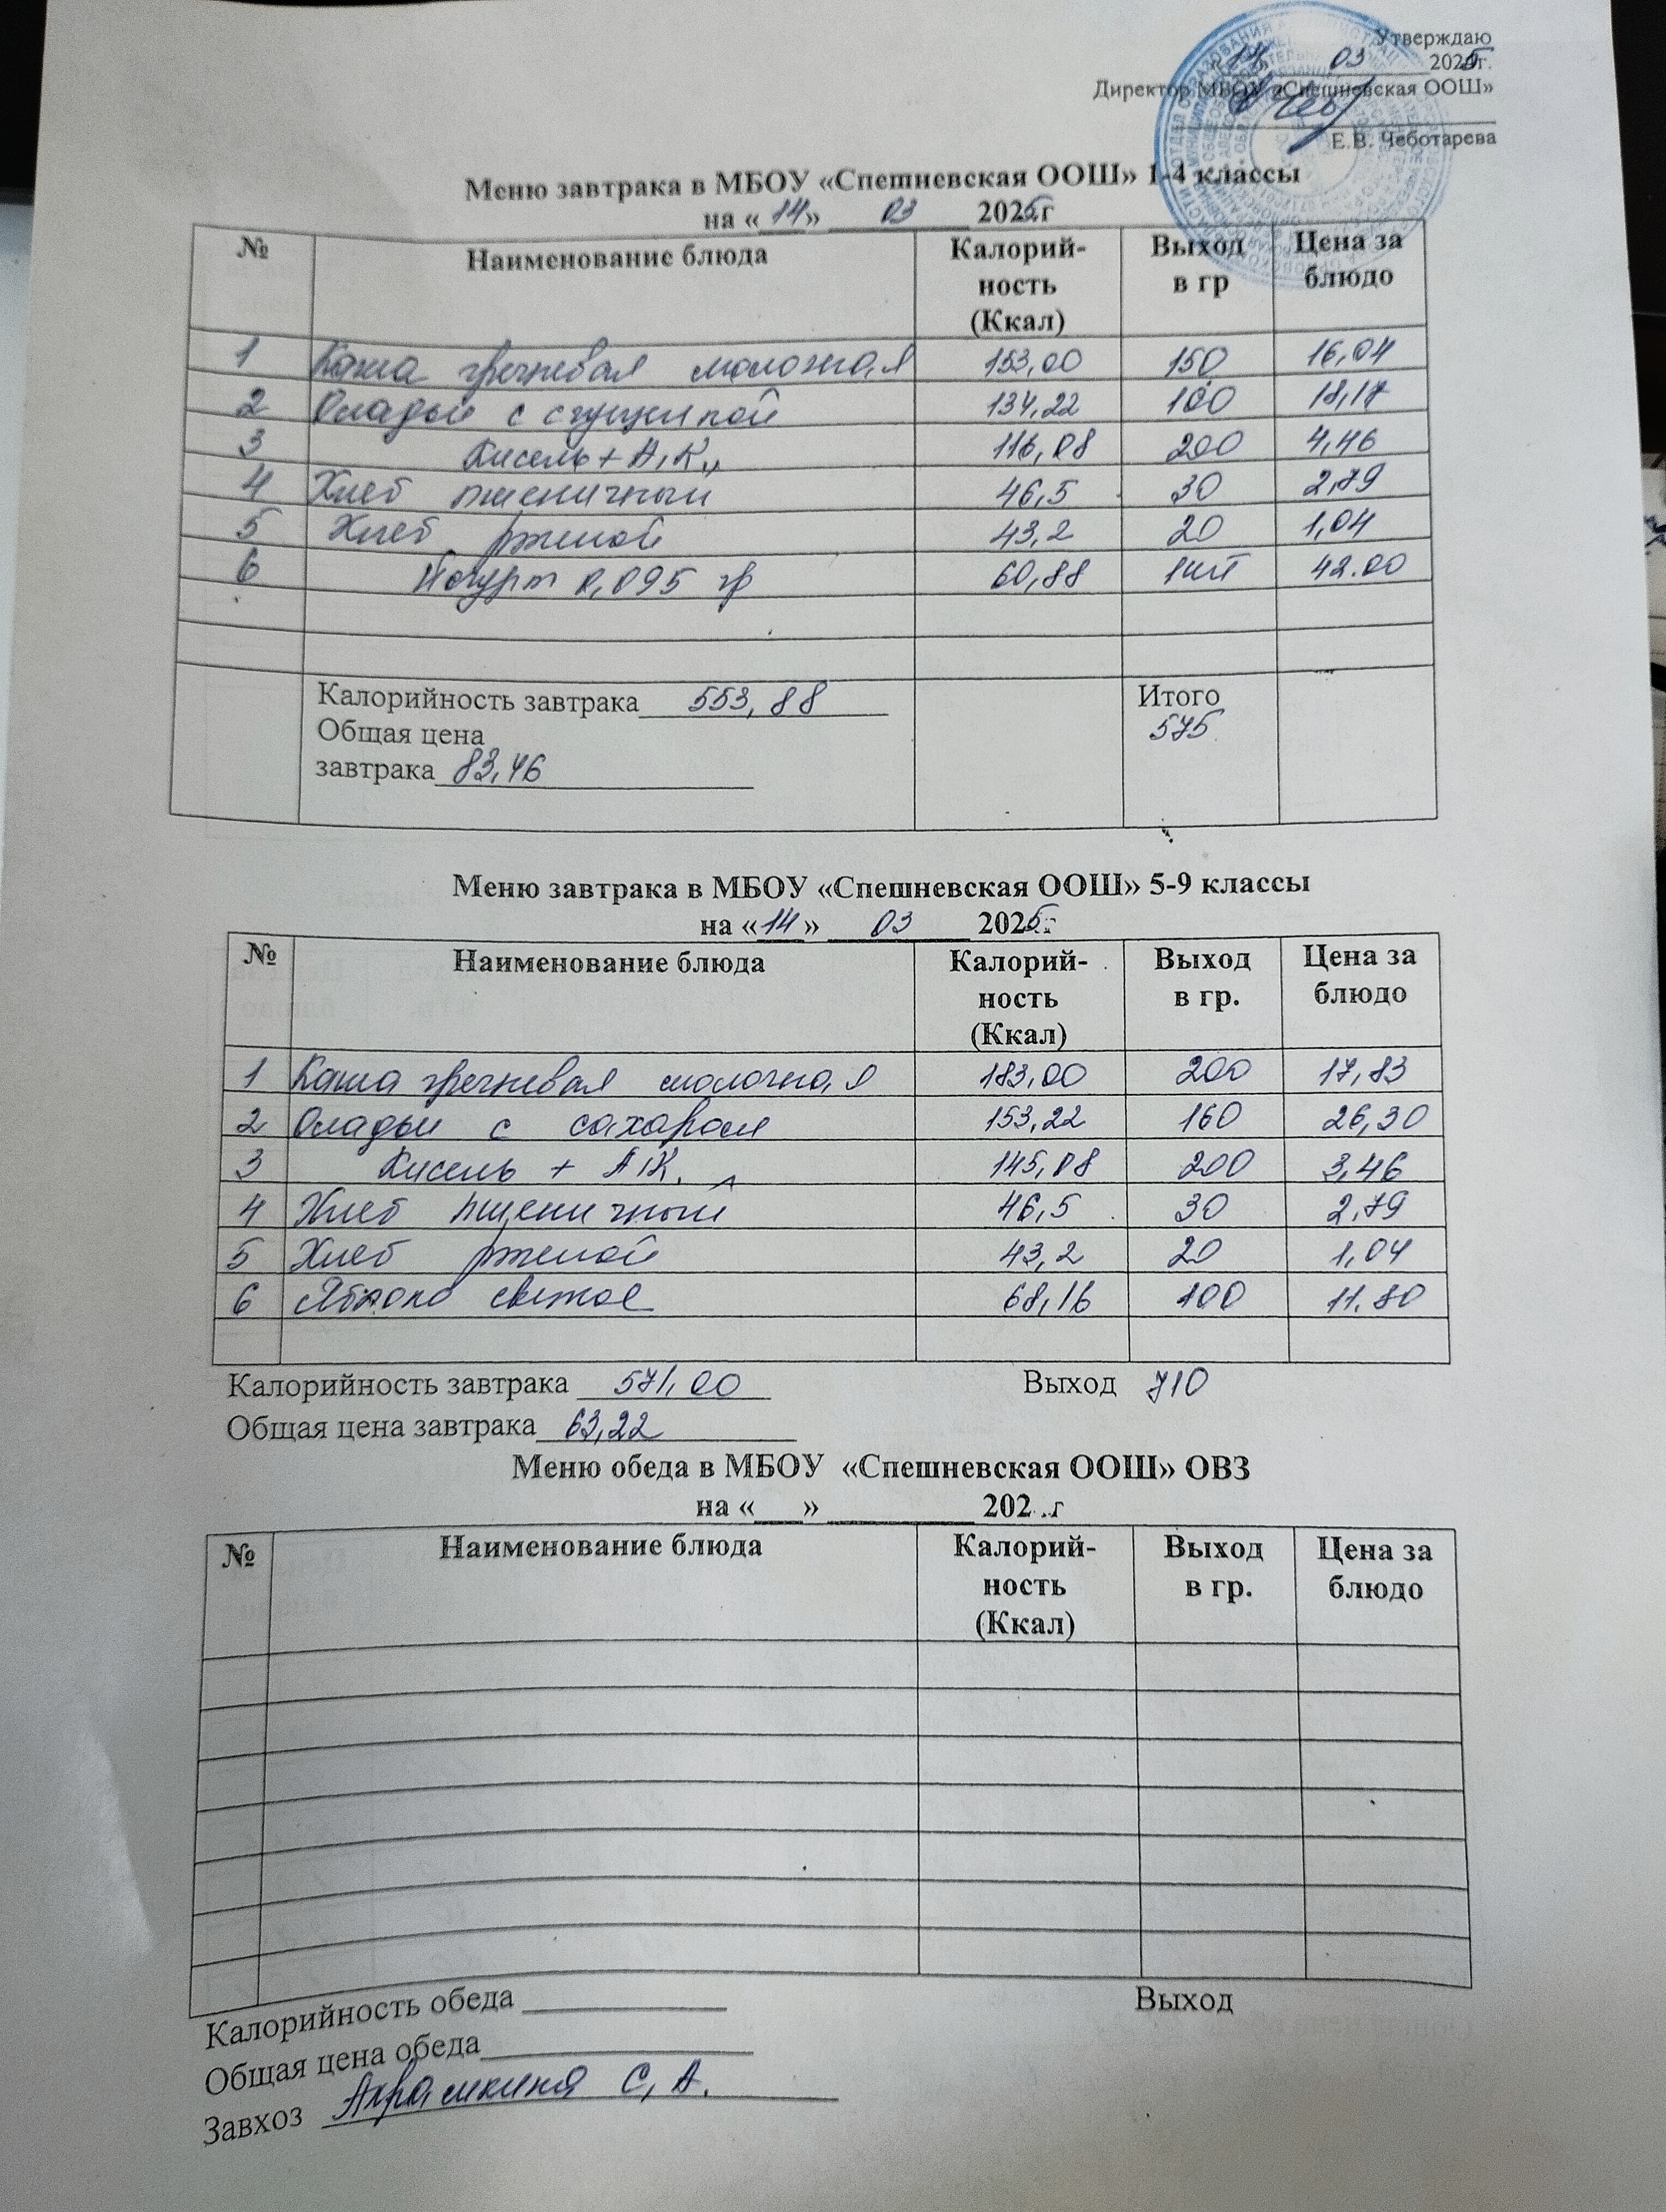 Утверждаю
«14» 03 2025г.
Директор МБОУ «Спешневская ООШ»
Е.В. Чеботарева
Меню завтрака в МБОУ «Спешневская ООШ» 1-4 классы
на «14» 03 2025г
№ Наименование блюда Калорий-ность (Ккал) Выход в гр Цена за блюдо
1 Каша гречневая молочная 153,00 150 16,04
2 Оладьи с сгущенкой 134,22 100 18,17
3 Кисель + А,К,, 116,08 200 4,46
4 Хлеб пшеничный 46,5 30 2,79
5 Хлеб ржаной 43,2 20 1,04
6 Йогурт 0,095 гр 60,88 1шт 42.00
Калорийность завтрака 553,88 Итого
Общая цена 575
завтрака 83,46
Меню завтрака в МБОУ «Спешневская ООШ» 5-9 классы
на «14» 03 2025г
№ Наименование блюда Калорий-ность (Ккал) Выход в гр. Цена за блюдо
1 Каша гречневая молочная 183,00 200 17,83
2 Оладьи с сахаром 153,22 160 26,30
3 Кисель + А,К. 145,08 200 3,46
4 Хлеб пшеничный 46,5 30 2,79
5 Хлеб ржаной 43,2 20 1,04
6 Яблоко свежее 68,16 100 11.80
Калорийность завтрака 571,00 Выход 710
Общая цена завтрака 63,22
Меню обеда в МБОУ «Спешневская ООШ» ОВЗ
на «___» _________ 202 .г
№ Наименование блюда Калорий-ность (Ккал) Выход в гр. Цена за блюдо
Калорийность обеда Выход
Общая цена обеда
Завхоз Абрашкина С,А.